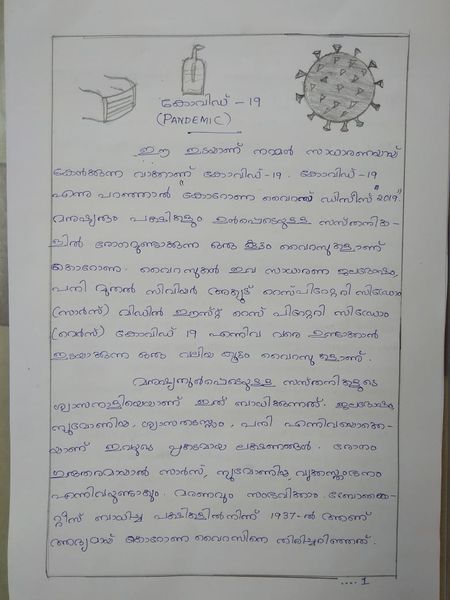 കോവിഡ് - 19
(PANDEMIC)
ഈ ഇടയാണ് നമ്മൾ സാധാരണയായ്
കേൾക്കുന്ന വാക്കാണ് കോവിഡ് -19. കോവിഡ് -19
എന്നു പറഞ്ഞാൽ "കോറോണ വൈറസ് ഡിസീസ് 2019".
മനുഷ്യരും പക്ഷികളും ഉൾപ്പെടെയുള്ള സസ്തനിക-
ളിൽ രോഗമുണ്ടാക്കുന്ന ഒരു കൂട്ടം വൈറസുകളാണ്
കൊറോണ. വൈറസുകൾ ഇവ സാധാരണ ജലദോഷം,
പനി മുതൽ സിവിയർ അക്യൂട്ട് റെസ്പിറേറ്ററി സിഡ്രോം
(സാർസ്) മിഡിൽ ഈസ്റ്റ് റെസ് പിറേറ്ററി സിഡ്രോം
(മെർസ്) കോവിഡ് 19 എന്നിവ വരെ ഉണ്ടാകാൻ
ഇടയാക്കുന്ന ഒരു വലിയ കൂട്ടം വൈറസുകളാണ്.
മനുഷ്യനുൾപ്പെടെയുള്ള സസ്തനികളുടെ
ശ്വാസനാളിയെയാണ് ഇത് ബാധിക്കുന്നത്. ജലദോഷം,
ന്യുമോണിയ, ശ്വാസതടസ്സം, പനി എന്നിവയൊക്കെ-
യാണ് ഇവയുടെ പ്രകടമായ ലക്ഷണങ്ങൾ. രോഗം
ഗുരുതരമായാൽ സാർസ്, ന്യുമോണിയ, വൃക്കസ്തംഭനം
എന്നിവയുണ്ടാകും. മരണവും സംഭവിക്കാം. ബ്രോങ്കൈ-
റ്റീസ് ബാധിച്ച പക്ഷികളിൽനിന്ന് 1937-ൽ ആണ്
ആദ്യമായ് കൊറോണ വൈറസിനെ തിരിച്ചറിഞ്ഞത്.
.... 1